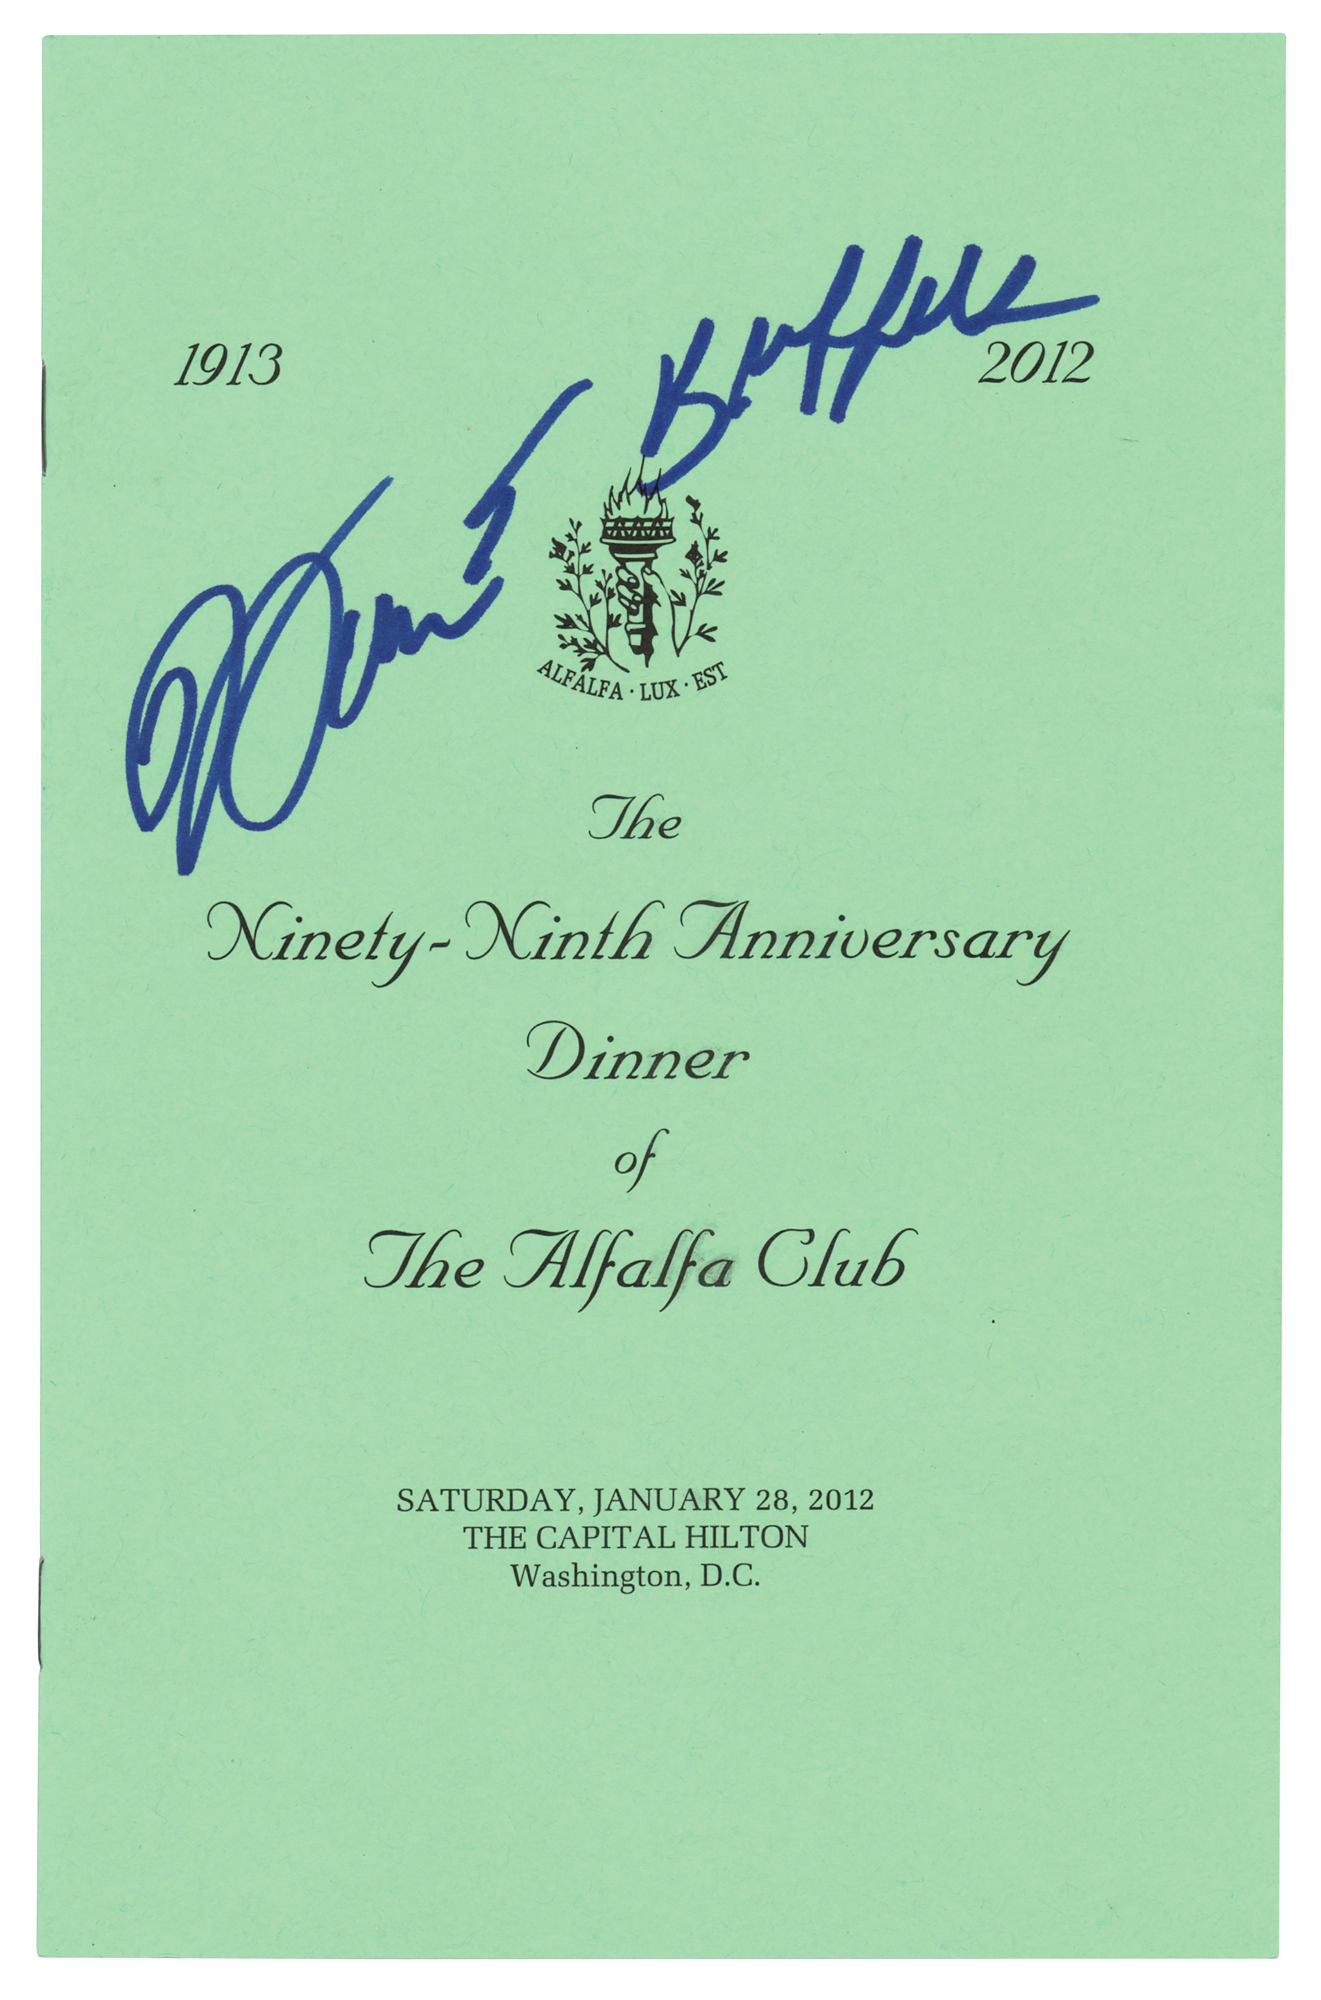 1913 2012
Warren E Buffett
ALFALFA · LUX · EST
The
Ninety-Ninth Anniversary
Dinner
of
The Alfalfa Club
SATURDAY, JANUARY 28, 2012
THE CAPITAL HILTON
Washington, D.C.